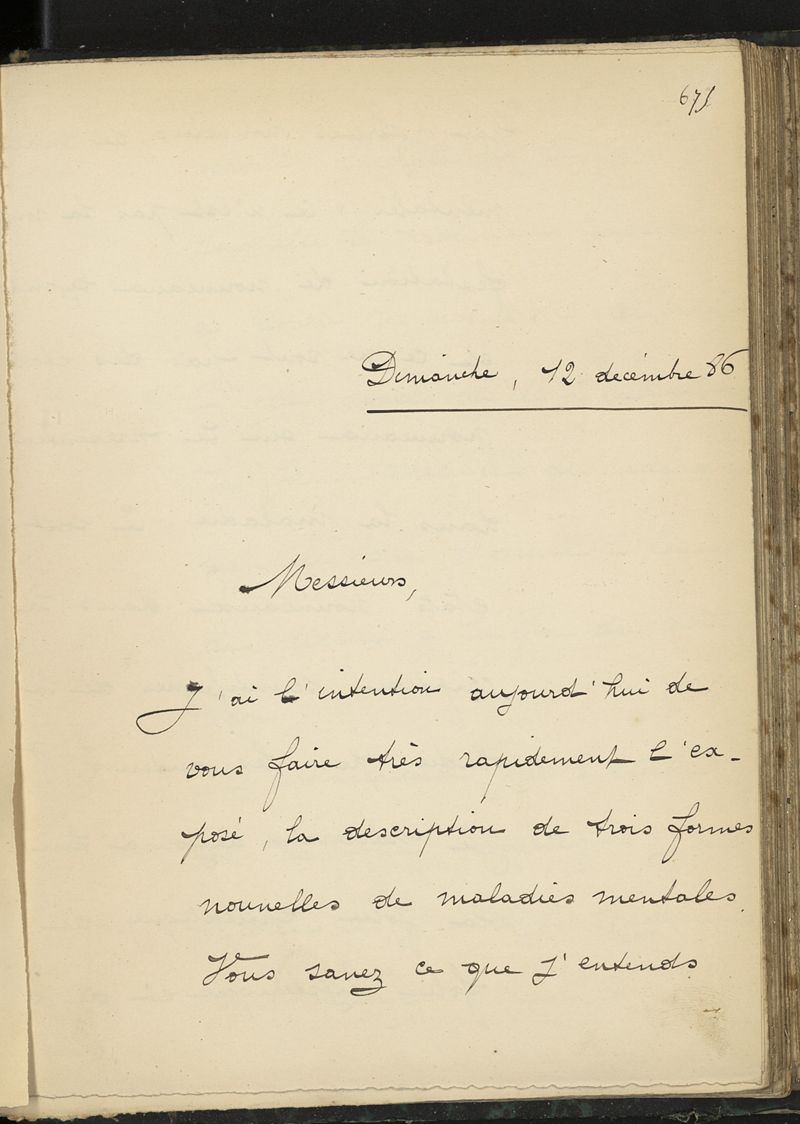 671
Dimanche, 12 décembre 86
Messieurs,
J'ai l'intention aujourd'hui de
vous faire très rapidement l'ex-
posé, la description de trois formes
nouvelles de maladies mentales.
Vous savez ce que j'entends